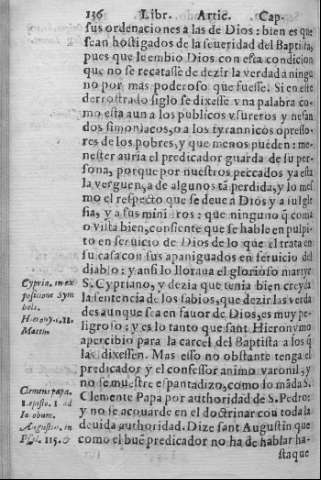 136 Libr. Artic. Cap.
sus ordenaciones a las de Dios: bien es que
sean hostigados de la seueridad del Baptista,
pues que le embio Dios con esta condicion
que no se recatasse de dezir la verdad a ningu
no por mas poderoso que fuesse. Si en este
derrostrado siglo se dixesse vna palabra co-
mo esta a vn a los publicos vsureros y nefan
dos simoniacos, o a los tyrannicos opresso-
res de los pobres, y que menos pueden: me-
nester auria el predicador guarda de su per-
sona, porque por nuestros peccados ya esta
la verguença de algunos tã perdida, y lo mes
mo el respecto que se deue a Dios y a su Igle
sia, y a sus ministros: que ninguno q̃ coma
o vista bien, consiente que se hable en pulpi-
to en seruicio de Dios de lo que el trata en
su casa con sus apaniguados en seruicio del
diablo: y ansi lo lloraua el glorioso martyr
S. Cypriano, y dezia que tenia bien creyda
la sentencia de los sabios, que dezir las verda
des aunque sea en fauor de Dios, es muy pe-
ligroso: y es lo tanto que sant Hieronymo
apercibio para la carcel del Baptista a los q̃
las dixessen. Mas esso no obstante tenga el
predicador y el confessor animo varonil, y
no se muestre espantadizo, como lo mãda S.
Clemente Papa por authoridad de S. Pedro:
y no se acouarde en el doctrinar con toda la
deuida authoridad. Dize sant Augustin que
como el buẽ predicador no ha de hablar ha-
sta que
Cypria. in ex
positione Sym
boli.
Hierony. c. 11.
Matth.
Clemens papa.
epist. 1. ad
Iacobum.
Augustin. in
Psal. 115.